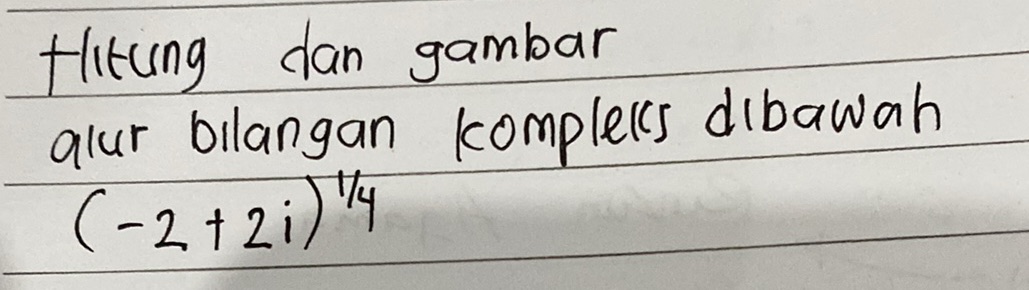 Hitung dan gambar
alur bilangan kompleks dibawah
(-2+2i)^1/4